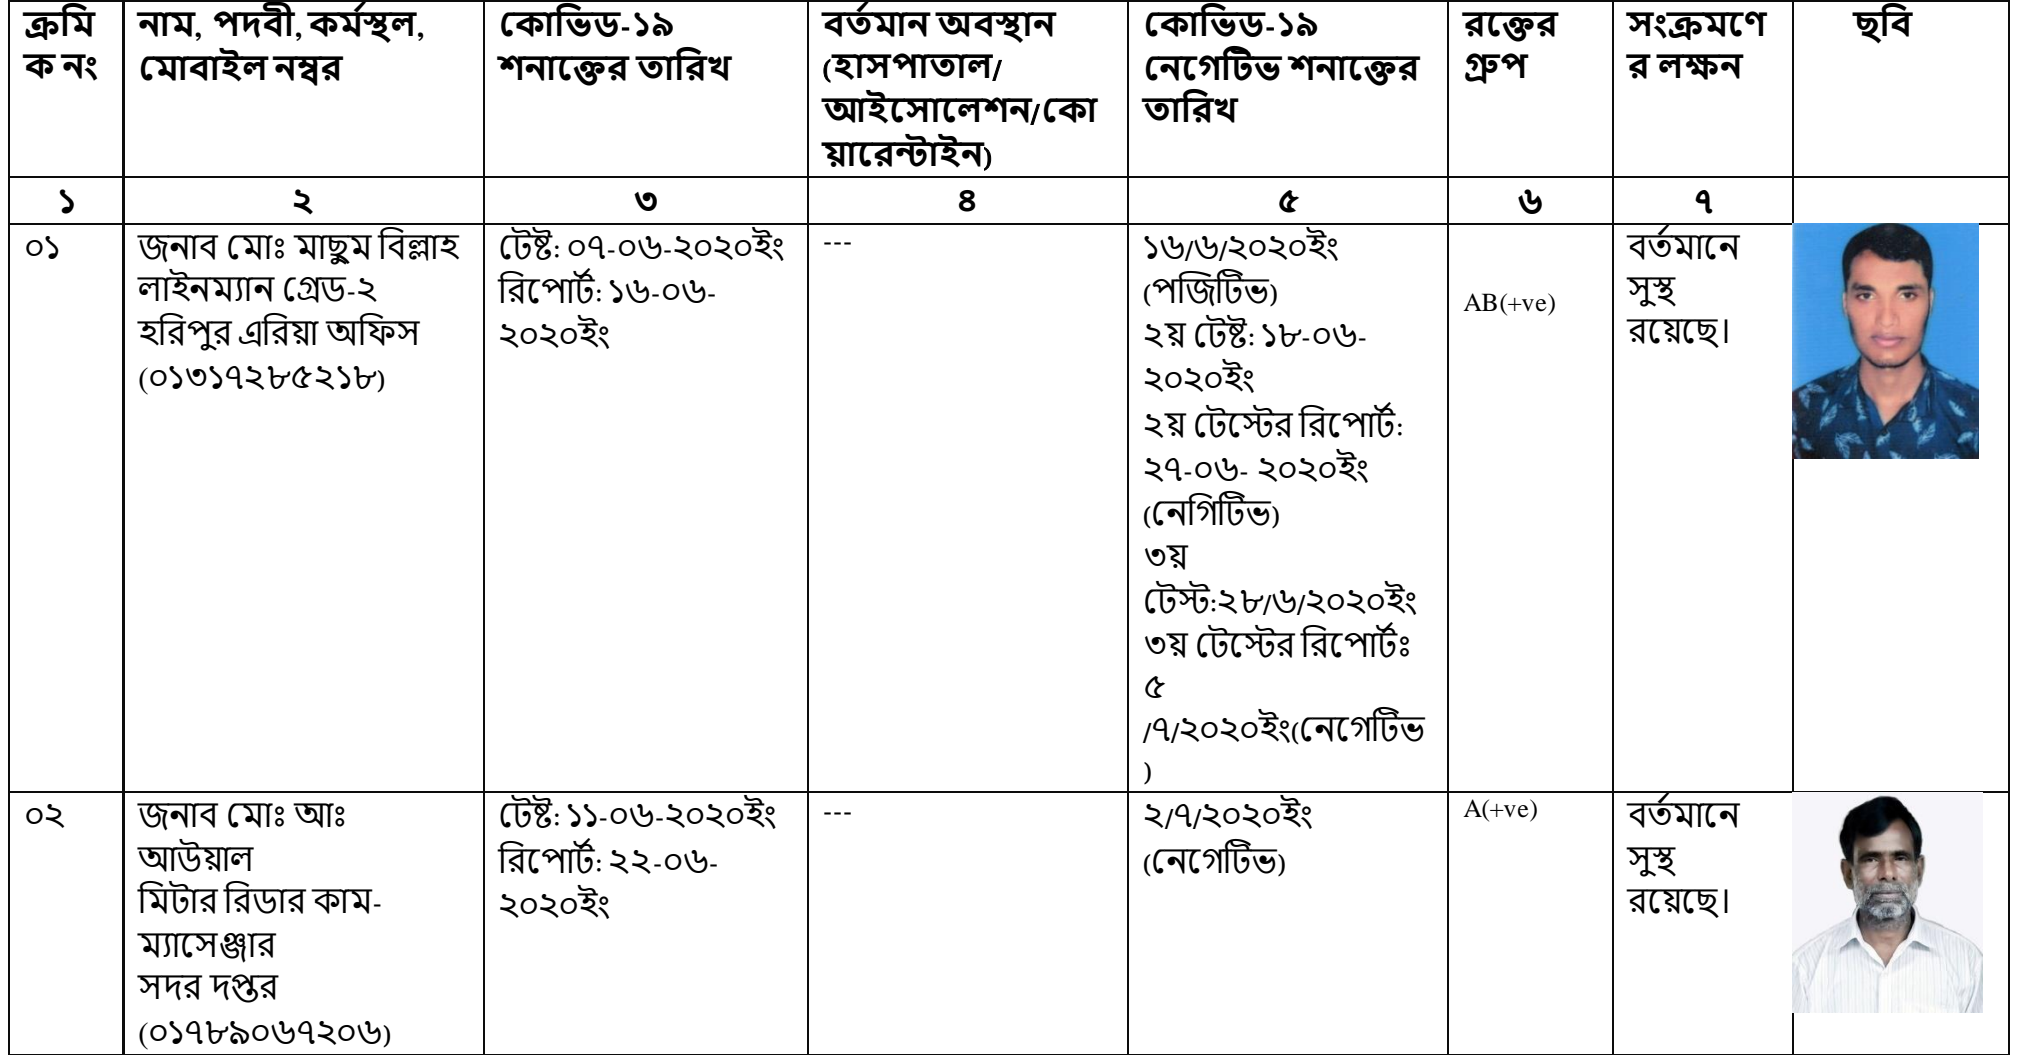 ক্রমি
ক নং
নাম, পদবী, কর্মস্থল,
মোবাইল নম্বর
কোভিড-১৯
শনাক্তের তারিখ
বর্তমান অবস্থান
(হাসপাতাল/
আইসোলেশন/কো
য়ারেন্টাইন)
কোভিড-১৯
নেগেটিভ শনাক্তের
তারিখ
রক্তের
গ্রুপ
সংক্রমণে
র লক্ষন
ছবি
১
২
৩
৪
৫
৬
৭
০১
জনাব মোঃ মাছুম বিল্লাহ
লাইনম্যান গ্রেড-২
হরিপুর এরিয়া অফিস
(০১৩১৭২৮৫২১৮)
টেষ্ট: ০৭-০৬-২০২০ইং
রিপোর্ট: ১৬-০৬-
২০২০ইং
---
১৬/৬/২০২০ইং
(পজিটিভ)
২য় টেষ্ট: ১৮-০৬-
২০২০ইং
২য় টেস্টের রিপোর্ট:
২৭-০৬- ২০২০ইং
(নেগিটিভ)
৩য়
টেস্ট:২৮/৬/২০২০ইং
৩য় টেস্টের রিপোর্টঃ
৫
/৭/২০২০ইং(নেগেটিভ
)
AB(+ve)
বর্তমানে
সুস্থ
রয়েছে।
০২
জনাব মোঃ আঃ
আউয়াল
মিটার রিডার কাম-
ম্যাসেঞ্জার
সদর দপ্তর
(০১৭৮৯০৬৭২০৬)
টেষ্ট: ১১-০৬-২০২০ইং
রিপোর্ট: ২২-০৬-
২০২০ইং
---
২/৭/২০২০ইং
(নেগেটিভ)
A(+ve)
বর্তমানে
সুস্থ
রয়েছে।